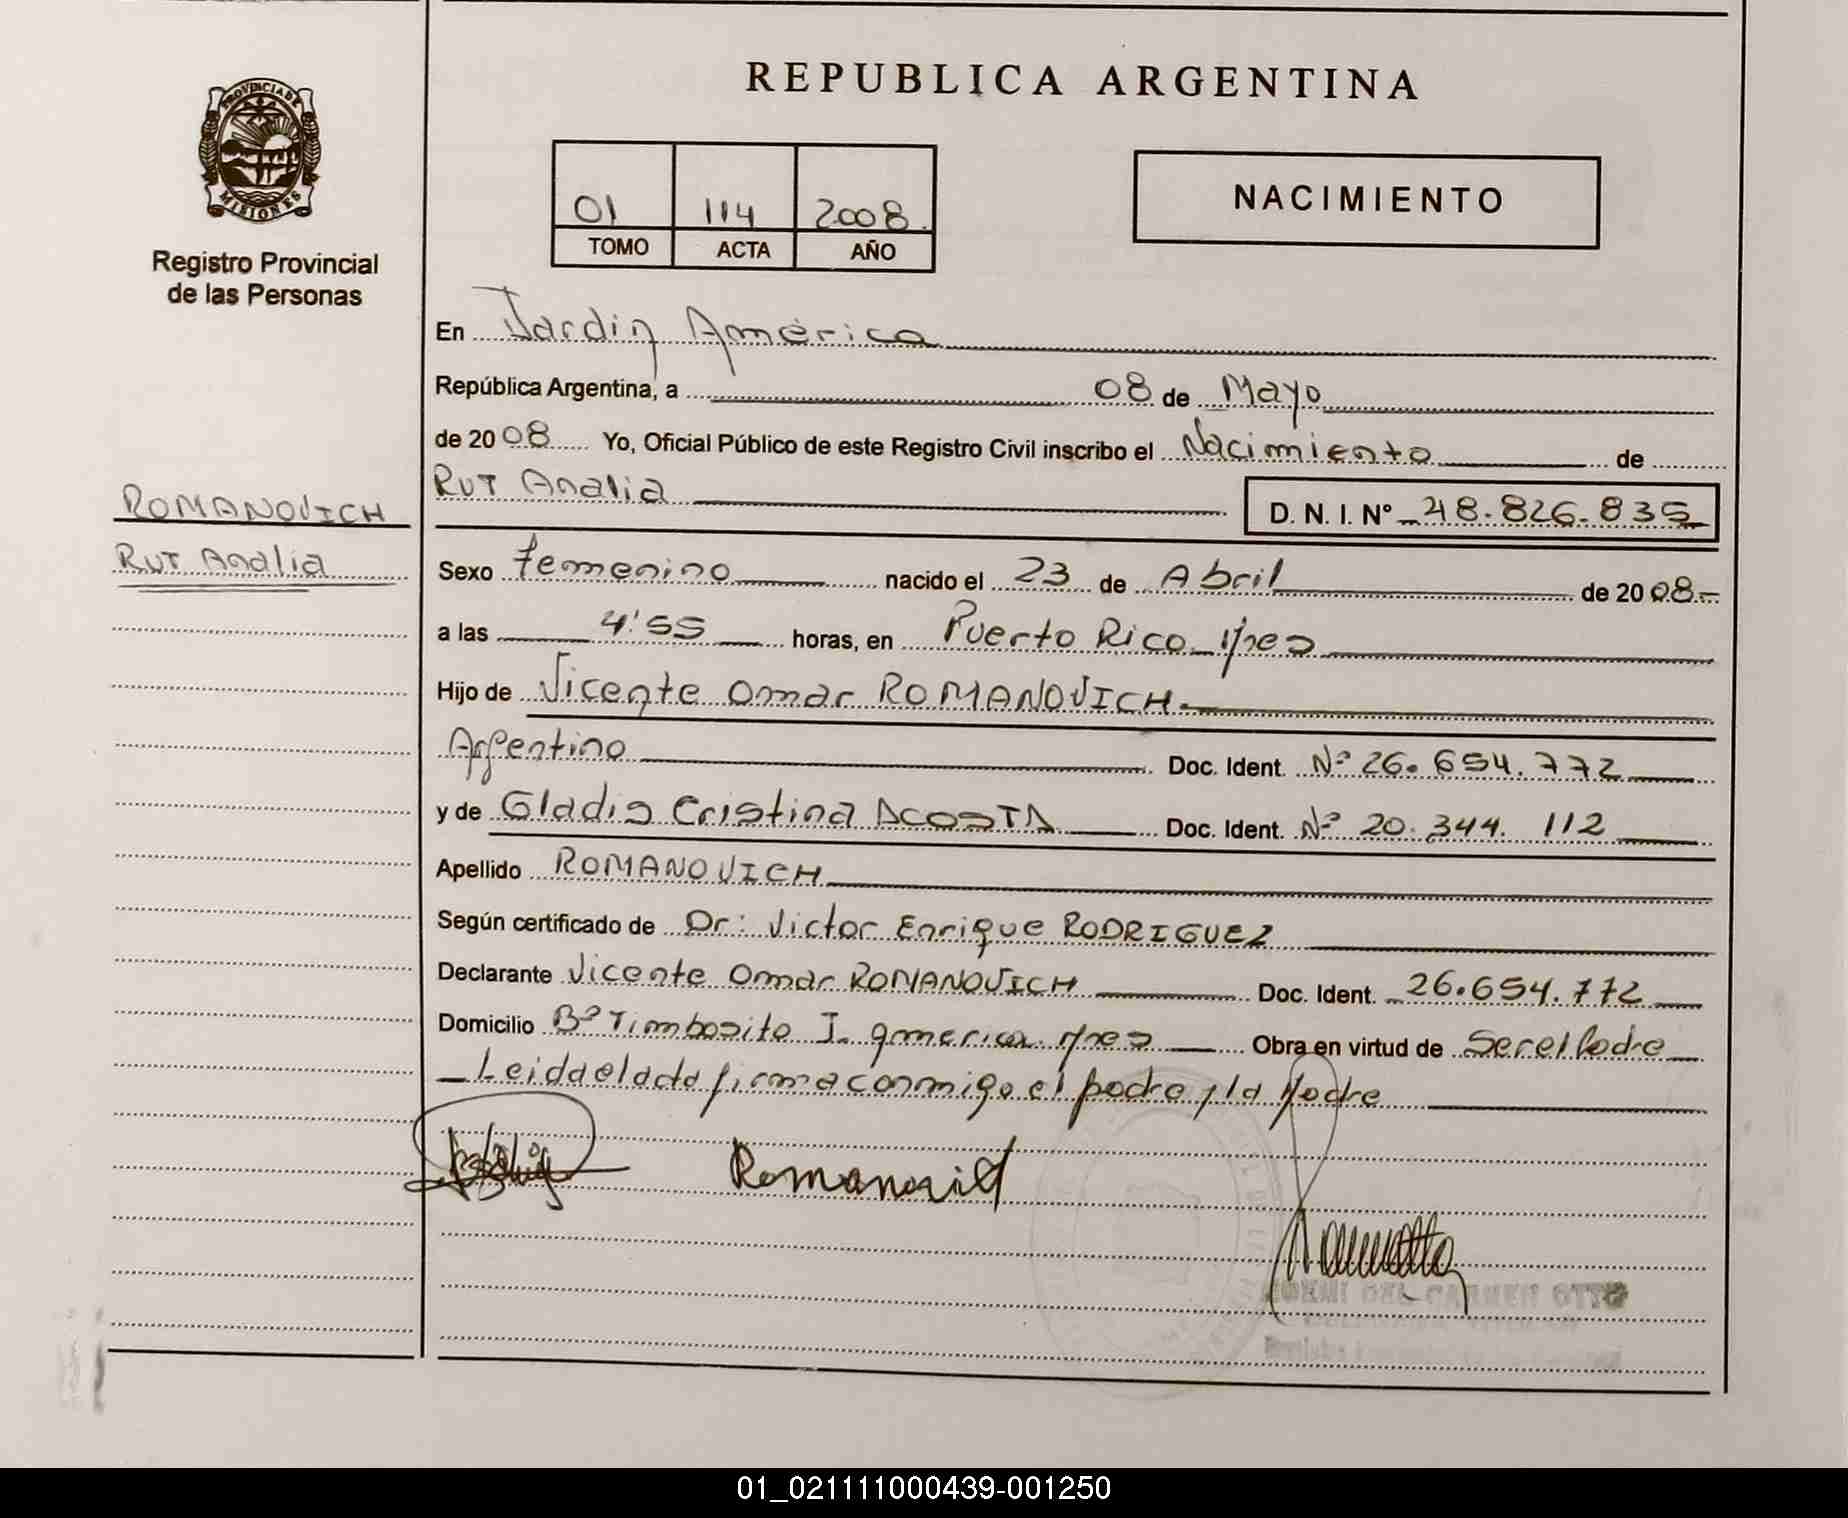 REPUBLICA ARGENTINA
PROVINCIA DE
MISIONES
Registro Provincial
de las Personas
01 114 2008.
TOMO ACTA AÑO
NACIMIENTO
En Jardin América
República Argentina, a 08 de Mayo
de 2008 Yo, Oficial Público de este Registro Civil inscribo el Nacimiento de
Rut Analia D. N. I. Nº 48.826.835
ROMANOVICH
Rut Analia
Sexo femenino nacido el 23 de Abril de 2008-
a las 4'55 horas, en Puerto Rico Mnes
Hijo de Vicente Omar ROMANOVICH
Argentino Doc. Ident. Nº 26.654.772
y de Gladis Cristina ACOSTA Doc. Ident. Nº 20.344.112
Apellido ROMANOVICH
Según certificado de Dr: Victor Enrique RODRIGUEZ
Declarante Vicente Omar ROMANOVICH Doc. Ident. 26.654.772
Domicilio Bº Timbosito J. america Mnes Obra en virtud de Ser el Padre
Leida el acta firma conmigo el padre y la Madre
Romanovich
DEL CARMEN OTTO
01_021111000439-001250